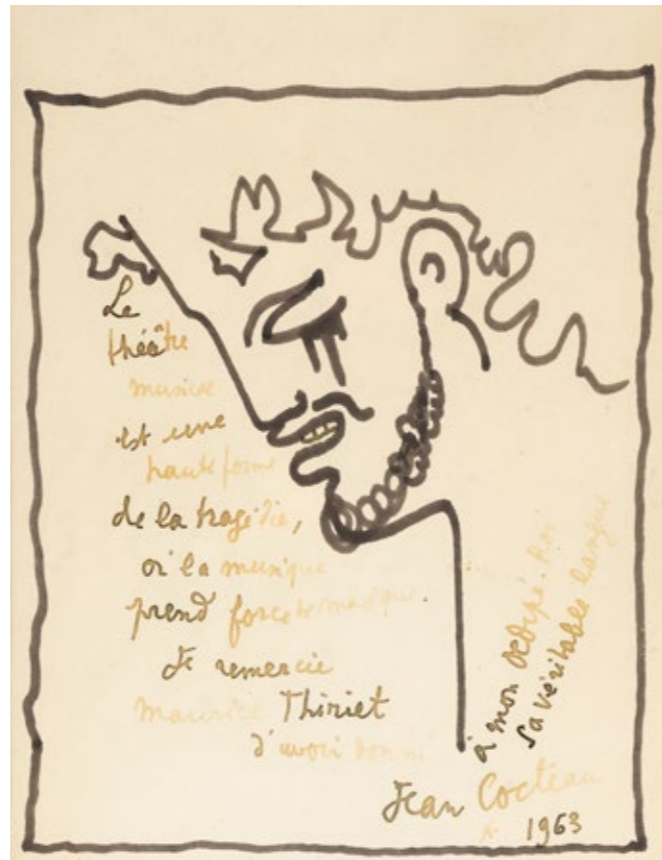 Le
théâtre
musical
est une
haute forme
de la tragédie,
où la musique
prend force de magique.
Je remercie
Maurice Thiriet
d'avoir donné
à mon Oedipe-Roi
sa véritable langue
Jean Cocteau
1963